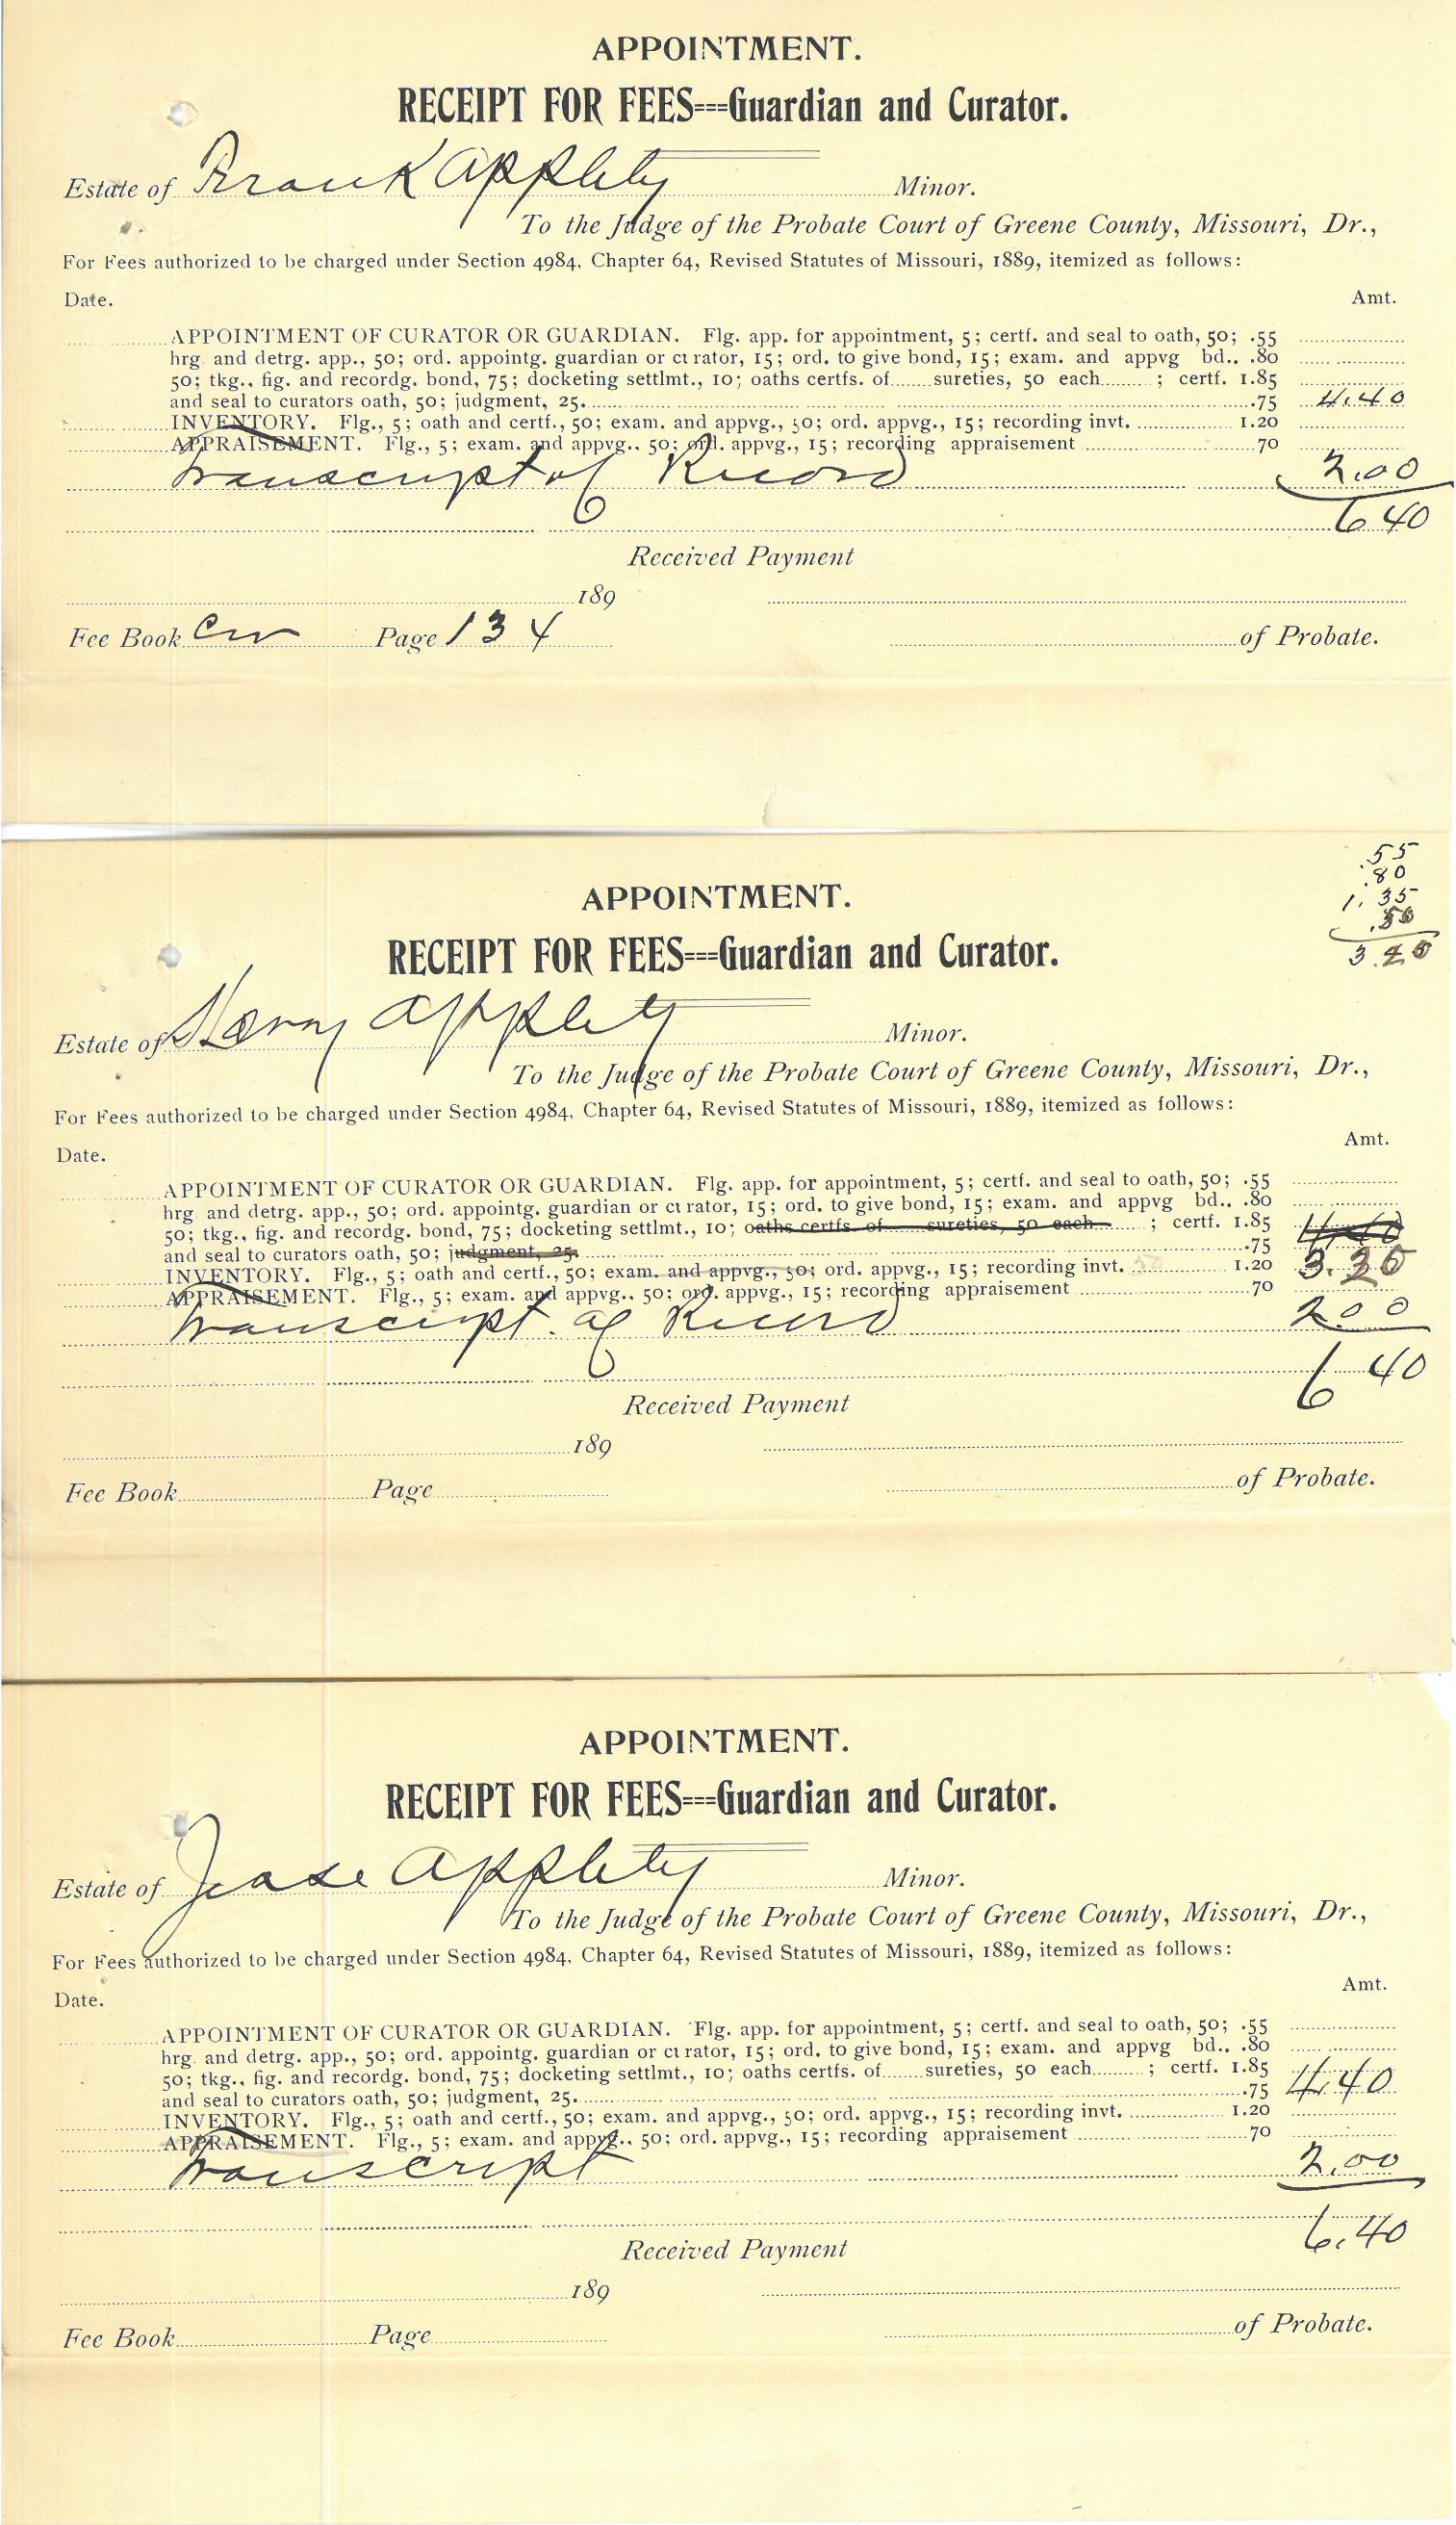 APPOINTMENT.
RECEIPT FOR FEES---Guardian and Curator.
Estate of Frank Applety Minor.
To the Judge of the Probate Court of Greene County, Missouri, Dr.,
For Fees authorized to be charged under Section 4984, Chapter 64, Revised Statutes of Missouri, 1889, itemized as follows:
Date. Amt.
APPOINTMENT OF CURATOR OR GUARDIAN. Flg. app. for appointment, 5; certf. and seal to oath, 50; .55
hrg. and detrg. app., 50; ord. appointg. guardian or curator, 15; ord. to give bond, 15; exam. and appvg bd.. .80
50; tkg., fig. and recordg. bond, 75; docketing settlmt., 10; oaths certfs. of......sureties, 50 each........ ; certf. 1.85
and seal to curators oath, 50; judgment, 25. .75 4.40
INVENTORY. Flg., 5; oath and certf., 50; exam. and appvg., 50; ord. appvg., 15; recording invt. 1.20
APPRAISEMENT. Flg., 5; exam. and appvg.. 50; ord. appvg., 15; recording appraisement 70
Transcript of Record 2.00
6 40
Received Payment
189
Fee Book Page 134 of Probate.
.55
.80
1.35
.50
APPOINTMENT.
RECEIPT FOR FEES---Guardian and Curator.
3.20
Estate of Harry Applety Minor.
To the Judge of the Probate Court of Greene County, Missouri, Dr.,
For Fees authorized to be charged under Section 4984, Chapter 64, Revised Statutes of Missouri, 1889, itemized as follows:
Date. Amt.
APPOINTMENT OF CURATOR OR GUARDIAN. Flg. app. for appointment, 5; certf. and seal to oath, 50; .55
hrg. and detrg. app., 50; ord. appointg. guardian or curator, 15; ord. to give bond, 15; exam. and appvg bd.. .80
50; tkg., fig. and recordg. bond, 75; docketing settlmt., 10; oaths certfs. of......sureties, 50 each........ ; certf. 1.85 4.40
and seal to curators oath, 50; judgment, 25. .75
INVENTORY. Flg., 5; oath and certf., 50; exam. and appvg., 50; ord. appvg., 15; recording invt. 1.20 3.20
APPRAISEMENT. Flg., 5; exam. and appvg.. 50; ord. appvg., 15; recording appraisement 70
Transcript of Record 2 00
6 40
Received Payment
189
Fee Book Page of Probate.
APPOINTMENT.
RECEIPT FOR FEES---Guardian and Curator.
Estate of Jesse Applety Minor.
To the Judge of the Probate Court of Greene County, Missouri, Dr.,
For Fees authorized to be charged under Section 4984, Chapter 64, Revised Statutes of Missouri, 1889, itemized as follows:
Date. Amt.
APPOINTMENT OF CURATOR OR GUARDIAN. Flg. app. for appointment, 5; certf. and seal to oath, 50; .55
hrg. and detrg. app., 50; ord. appointg. guardian or curator, 15; ord. to give bond, 15; exam. and appvg bd.. .80
50; tkg., fig. and recordg. bond, 75; docketing settlmt., 10; oaths certfs. of......sureties, 50 each........ ; certf. 1.85
and seal to curators oath, 50; judgment, 25. .75 4.40
INVENTORY. Flg., 5; oath and certf., 50; exam. and appvg., 50; ord. appvg., 15; recording invt. 1.20
APPRAISEMENT. Flg., 5; exam. and appvg.. 50; ord. appvg., 15; recording appraisement 70
Transcript 2.00
6.40
Received Payment
189
Fee Book Page of Probate.